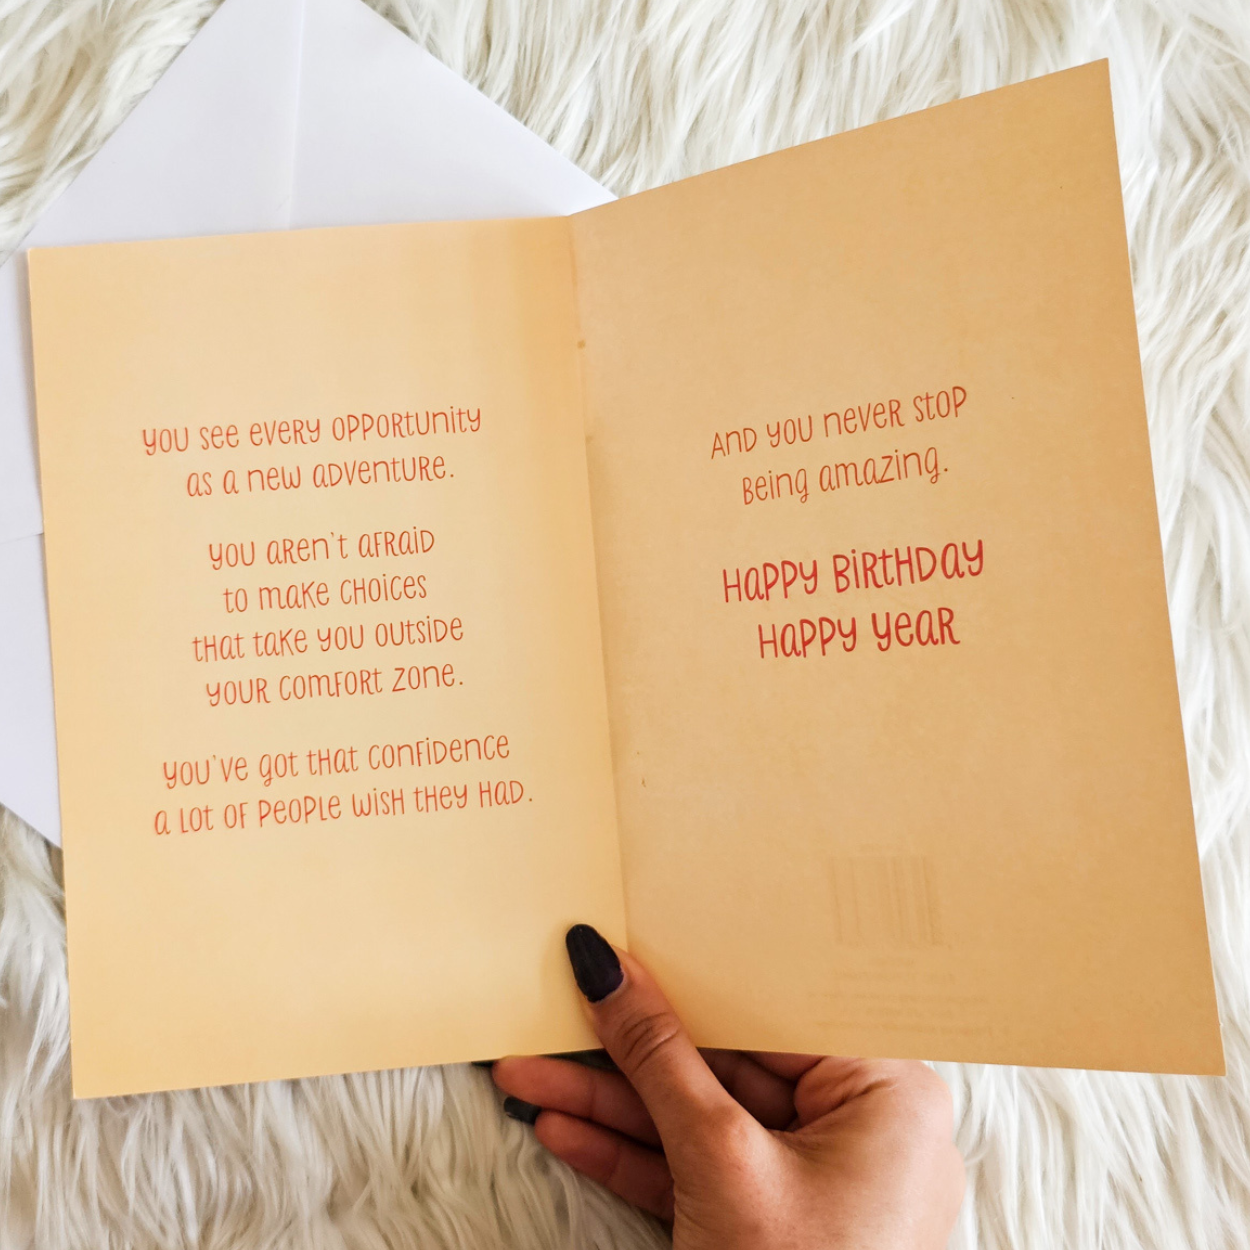 You see every opportunity
as a new adventure.
You aren't afraid
to make choices
that take you outside
your comfort zone.
You've got that confidence
a lot of people wish they had.
And you never stop
being amazing.
Happy Birthday
Happy Year